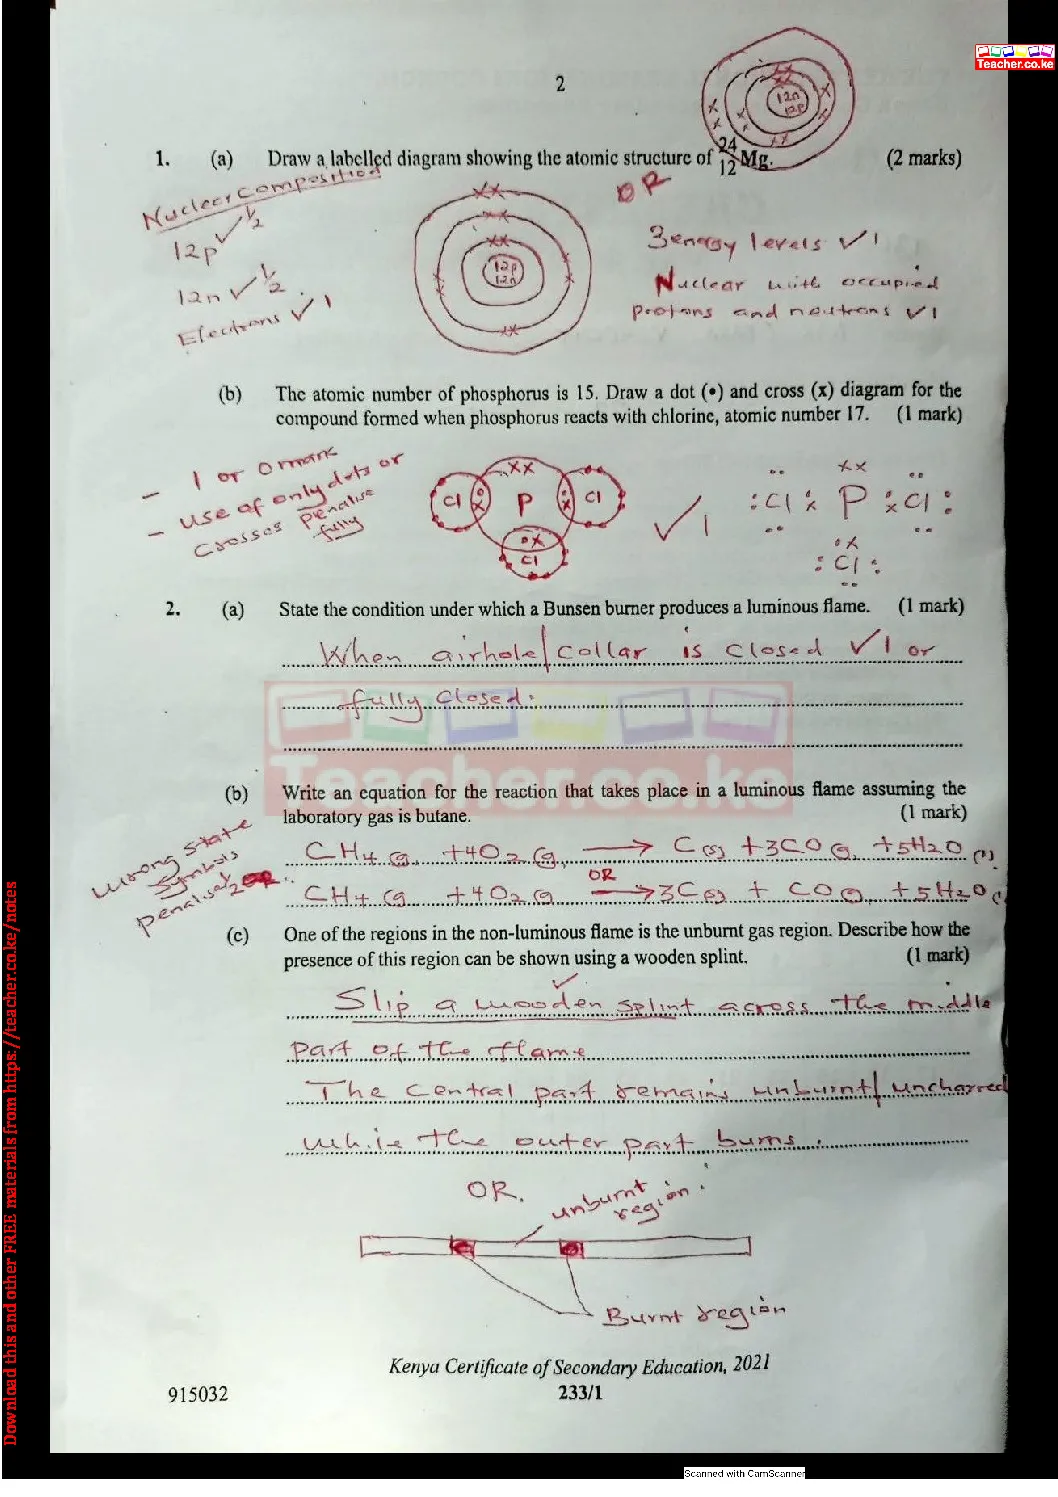 Teacher.co.ke
2
12n
12p
1. (a) Draw a labelled diagram showing the atomic structure of 24 12 Mg. (2 marks)
Nuclear composition
OR
12p ✓ 1/2
12n ✓ 1/2
Electrons ✓ 1
12p
12n
3 energy levels ✓ 1
Nuclear with occupied
protons and neutrons ✓ 1
(b) The atomic number of phosphorus is 15. Draw a dot (•) and cross (x) diagram for the
compound formed when phosphorus reacts with chlorine, atomic number 17. (1 mark)
- 1 or 0 mark
- use of only dots or
crosses penalise
fully
Cl P Cl
Cl
✓ 1
Cl P Cl
Cl
2. (a) State the condition under which a Bunsen burner produces a luminous flame. (1 mark)
When airhole/collar is closed ✓ 1 or
fully closed.
Teacher.co.ke
(b) Write an equation for the reaction that takes place in a luminous flame assuming the
laboratory gas is butane. (1 mark)
Wrong state
symbols
penalise
CH4(g) + 4O2(g) → C(s) + 3CO(g) + 5H2O(l)
OR
CH4(g) + 4O2(g) → 3C(s) + CO(g) + 5H2O(
(c) One of the regions in the non-luminous flame is the unburnt gas region. Describe how the
presence of this region can be shown using a wooden splint. (1 mark)
Slip a wooden splint across the middle
part of the flame
The central part remains unburnt/uncharred
while the outer part burns.
OR.
unburnt
region
Burnt region
Kenya Certificate of Secondary Education, 2021
915032 233/1
Scanned with CamScanner
Download this and other FREE materials from https://teacher.co.ke/notes